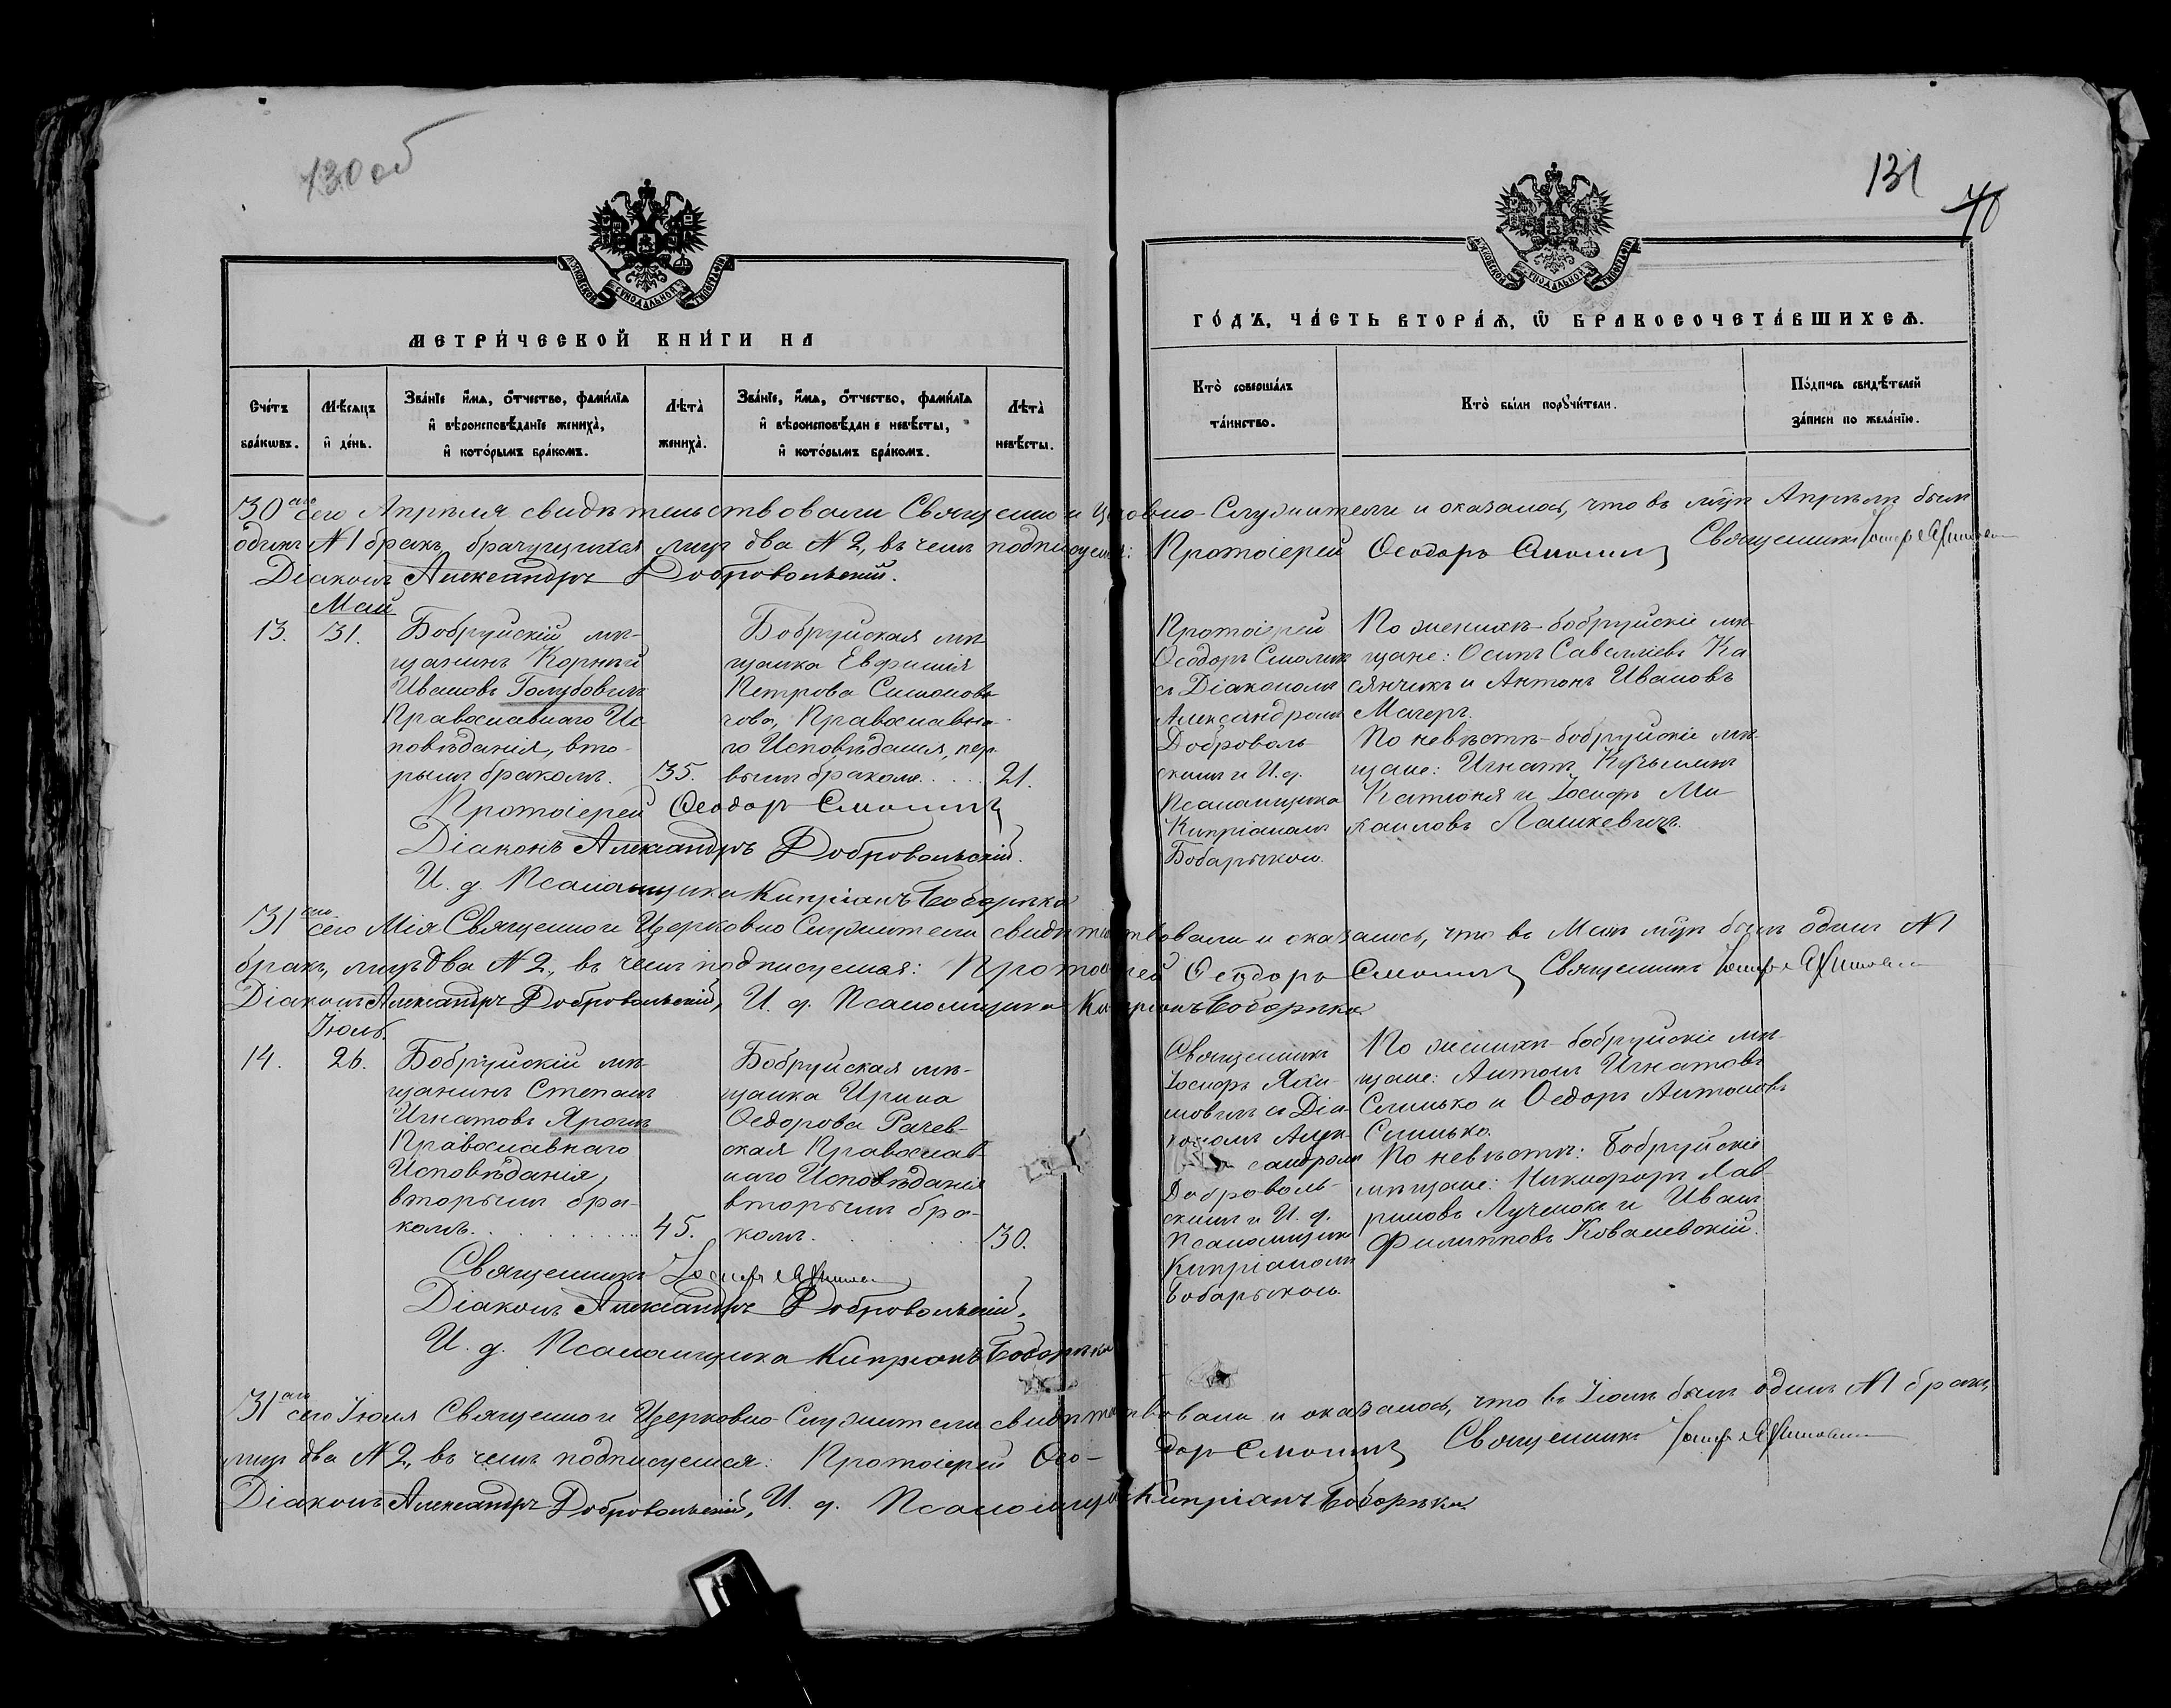 130 об
131
70
МОСКОВСКОЙ СУНОДАЛЬНОЙ ТИПОГРАФІИ
МОСКОВСКОЙ СУНОДАЛЬНОЙ ТИПОГРАФІИ
МЕТРИ́ЧЕСКОЙ КНИ́ГИ НА
ГО́ДЪ, ЧА́СТЬ ВТОРА́Ѧ, Ѡ҆ БРАКОСОЧЕТА́ВШИХСѦ.
Сче́тъ бра́кѡвъ.
Мѣ́сѧцъ и҆ де́нь.
Зва́нїе, и҆́мѧ, ѻ҆́тчество, фами́лїѧ
и҆ вѣроисповѣ́данїе жениха̀,
и҆ кото́рымъ бра́комъ.
Лѣта̀ жениха̀.
Зва́нїе, и҆́мѧ, ѻ҆́тчество, фами́лїѧ
и҆ вѣроисповѣ́данїе невѣ́сты,
и҆ кото́рымъ бра́комъ.
Лѣта̀ невѣ́сты.
Кто̀ соверша́лъ
та́инство.
Кто̀ бы́ли поручи́тели.
По́дпись свидѣ́телей
за́писи по жела́нїю.
30 сего Апрѣля свидѣтельствовали Священно и Церковно-Служители и оказалось, что въ м-цѣ Апрѣлѣ былъ
одинъ №1 бракъ, брачущихся лицъ два №2, въ чемъ подписуемся: Протоіерей Ѳеодоръ Смоличъ Священникъ Іосифъ
Діаконъ Александръ Добровольскій.
Май
13. 31.
Бобруйскій мѣ-
щанинъ Корнѣй
Ивановъ Голубовичъ
Православнаго Ис-
повѣданія, вто-
рымъ бракомъ. 35.
Бобруйская мѣ-
щанка Евфимія
Петрова Симонови-
чова, Православна-
го Исповѣданія, пер-
вымъ бракомъ. 21.
Протоіерей
Ѳеодоръ Смоличъ
съ Діакономъ
Александромъ
Доброволь-
скимъ и И. д.
Псаломщика
Кипріаномъ
Бобарыкою.
По женихѣ-бобруйскіе мѣ-
щане: Осипъ Савелліевъ Ка
сянчикъ и Антонъ Ивановъ
Магеръ.
По невѣстѣ-бобруйскіе мѣ-
щане: Игнатъ Кузьминъ
Катюня и Іосифъ Ми-
хаиловъ Лашкевичъ.
Протоіерей Ѳеодоръ Смоличъ
Діаконъ Александръ Добровольскій.
И. д. Псаломщика Кипріанъ Боборыка
31 сего Мая Священно и Церковно Служители свидѣтельствовали и оказалось, что въ Маѣ м-цѣ былъ одинъ №1
бракъ, лицъ два №2, въ чемъ подписуемся: Протоіерей Ѳеодоръ Смоличъ Священникъ Іосифъ
Діаконъ Александръ Добровольскій, И. д. Псаломщика Кипріанъ Боборыка
Іюль.
14. 26.
Бобруйскій мѣ-
щанинъ Степанъ
Игнатовъ Ярошъ
Православнаго
Исповѣданія,
вторымъ бра-
комъ. 45.
Бобруйская мѣ-
щанка Ирина
Ѳедорова Рачев-
ская Православ-
наго Исповѣданія
вторымъ бра-
комъ. 30.
Священникъ
Іосифъ Яхи-
мовичъ съ Діа-
кономъ Алек-
сандромъ
Доброволь-
скимъ и И. д.
Псаломщика
Кипріаномъ
Бобарыкою.
По женихѣ-бобруйскіе мѣ-
щане: Антонъ Игнатовъ
Слинько и Ѳедоръ Антоновъ
Слинько.
По невѣстѣ: Бобруйскіе
мѣщане: Никифоръ Лав-
риновъ Лученокъ и Иванъ
Филипповъ Ковалевскій.
Священникъ Іосифъ
Діаконъ Александръ Добровольскій.
И. д. Псаломщика Кипріанъ Боборыка
31 сего Іюля Священно и Церковно-Служители свидѣтельствовали и оказалось, что въ Іюлѣ былъ одинъ №1 бракъ,
лицъ два №2, въ чемъ подписуемся: Протоіерей Ѳео-доръ Смоличъ Священникъ Іосифъ
Діаконъ Александръ Добровольскій, И. д. Псаломщика Кипріанъ Боборыка.